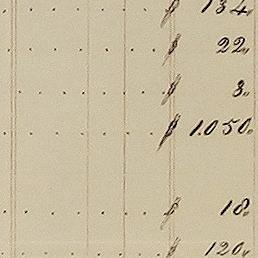 . . . . . . $ 134"
. . . . . . $ 22"
. . . . . . $ 3"
. . . . . . $ 1.050"
. . . . . . $ 18"
. . . . . . $ 120"